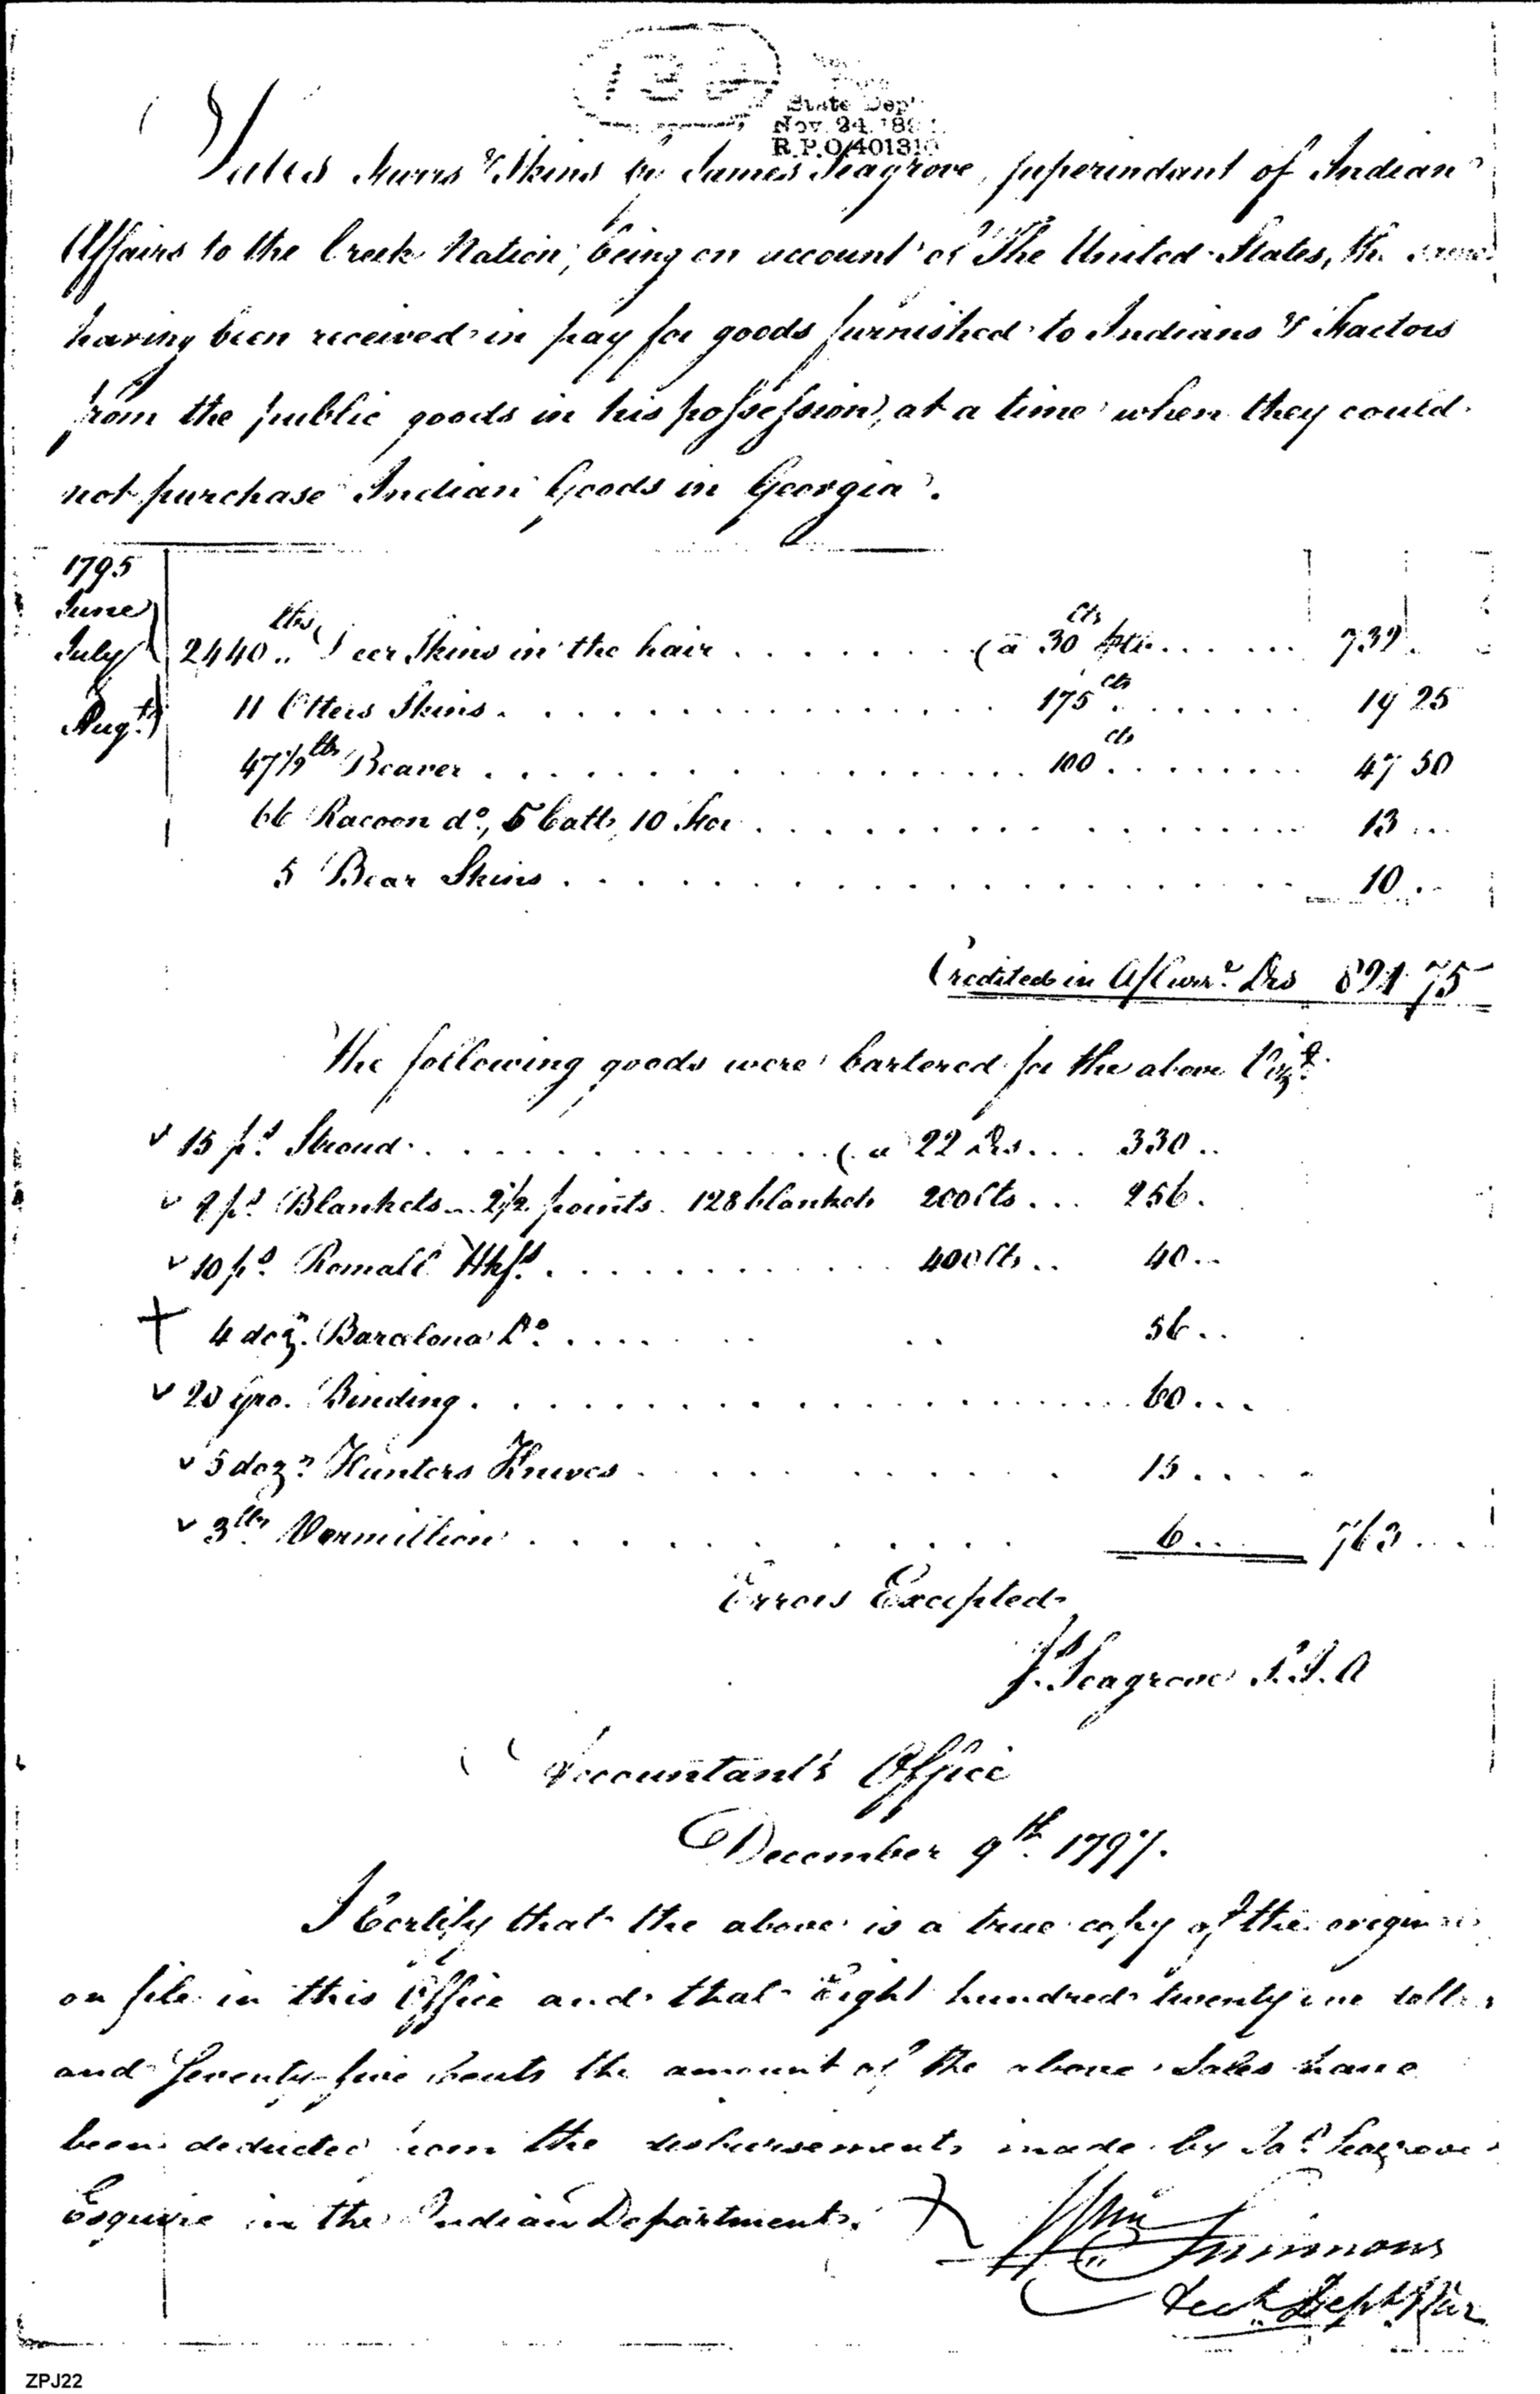 134
State Dep't
Nov. 24. 189
R.P.O/401310
Sales Furrs & Skins by James Seagrove, Superindant of Indian
Affairs to the Creek Nation, being on account of The United States, the same
having been received in pay for goods furnished to Indians & Factors
from the public goods in his possession, at a time when they could
not purchase Indian Goods in Georgia.
1795
June
July 2440 lbs Deer Skins in the hair . . . . . . . (a 30 Cts . . . . . . 732.
Augt 11 Otters Skins . . . . . . . . . . 175 cts . . . . . . . 19 25
47 1/2 lbs Beaver . . . . . . . . . . 100 cts . . . . . . . 47 50
66 Racoon do, 5 Catts, 10 Fox . . . . . . . . . . 13 ...
5 Bear Skins . . . . . . . . . . 10 ..
Credited in A/Curr. Drs 821 75
The following goods were bartered for the above Vizt.
v 15 ps. Stroud . . . . . . . . . . (a 22 Drs . . . 330 ..
v 8 ps. Blankets .. 2 1/2 points. 128 blankets 200 Cts . . . 256.
v 10 ps. Romall Hkfs. . . . . . . . . . . 400 Cts . . 40 ..
+ 4 dozn. Barcelona Do. . . . . . . 56 ..
v 20 Gro. Binding . . . . . . . . . . 60 ...
v 5 dozn Hunters Knives . . . . . . . . 15 ....
v 3 lbs Vermillion . . . . . . . . 6 ... 763 ...
Errors Excepted
Js. Seagrove S.I.A
Accountant's Office
December 9th. 1797.
I Certify that the above is a true copy of the original
on file in this Office and that Eight hundred twenty one dollars
and Seventy five Cents the amount of the above Sales have
been deducted from the disbursements made by Jas. Seagrove
Esquire in the Indian Department.
Wm Simmons
Acct Dept War
ZPJ22